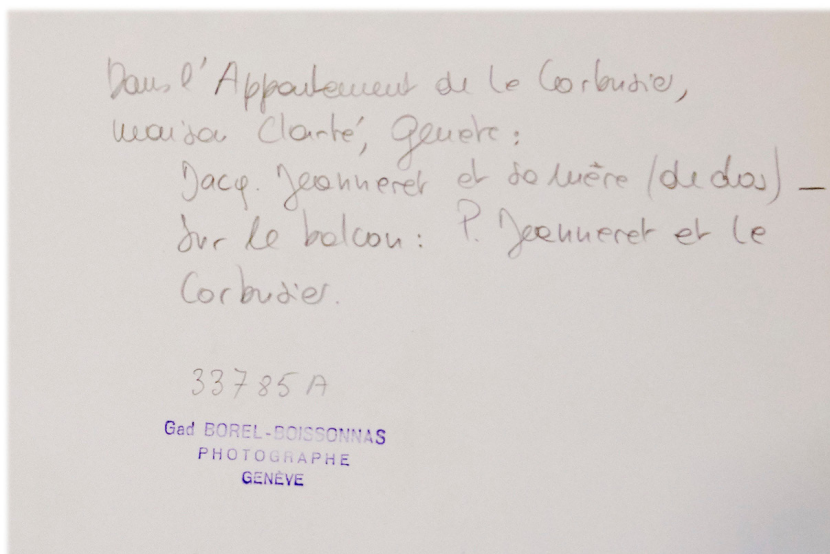 Dans l'Appartement de le Corbusier,
maison Clarté, Genève :
Jacq. Jeanneret et sa mère (de dos) —
sur le balcon : P. Jeanneret et le
Corbusier.
33785 A
Gad BOREL-BOISSONNAS
PHOTOGRAPHE
GENÈVE